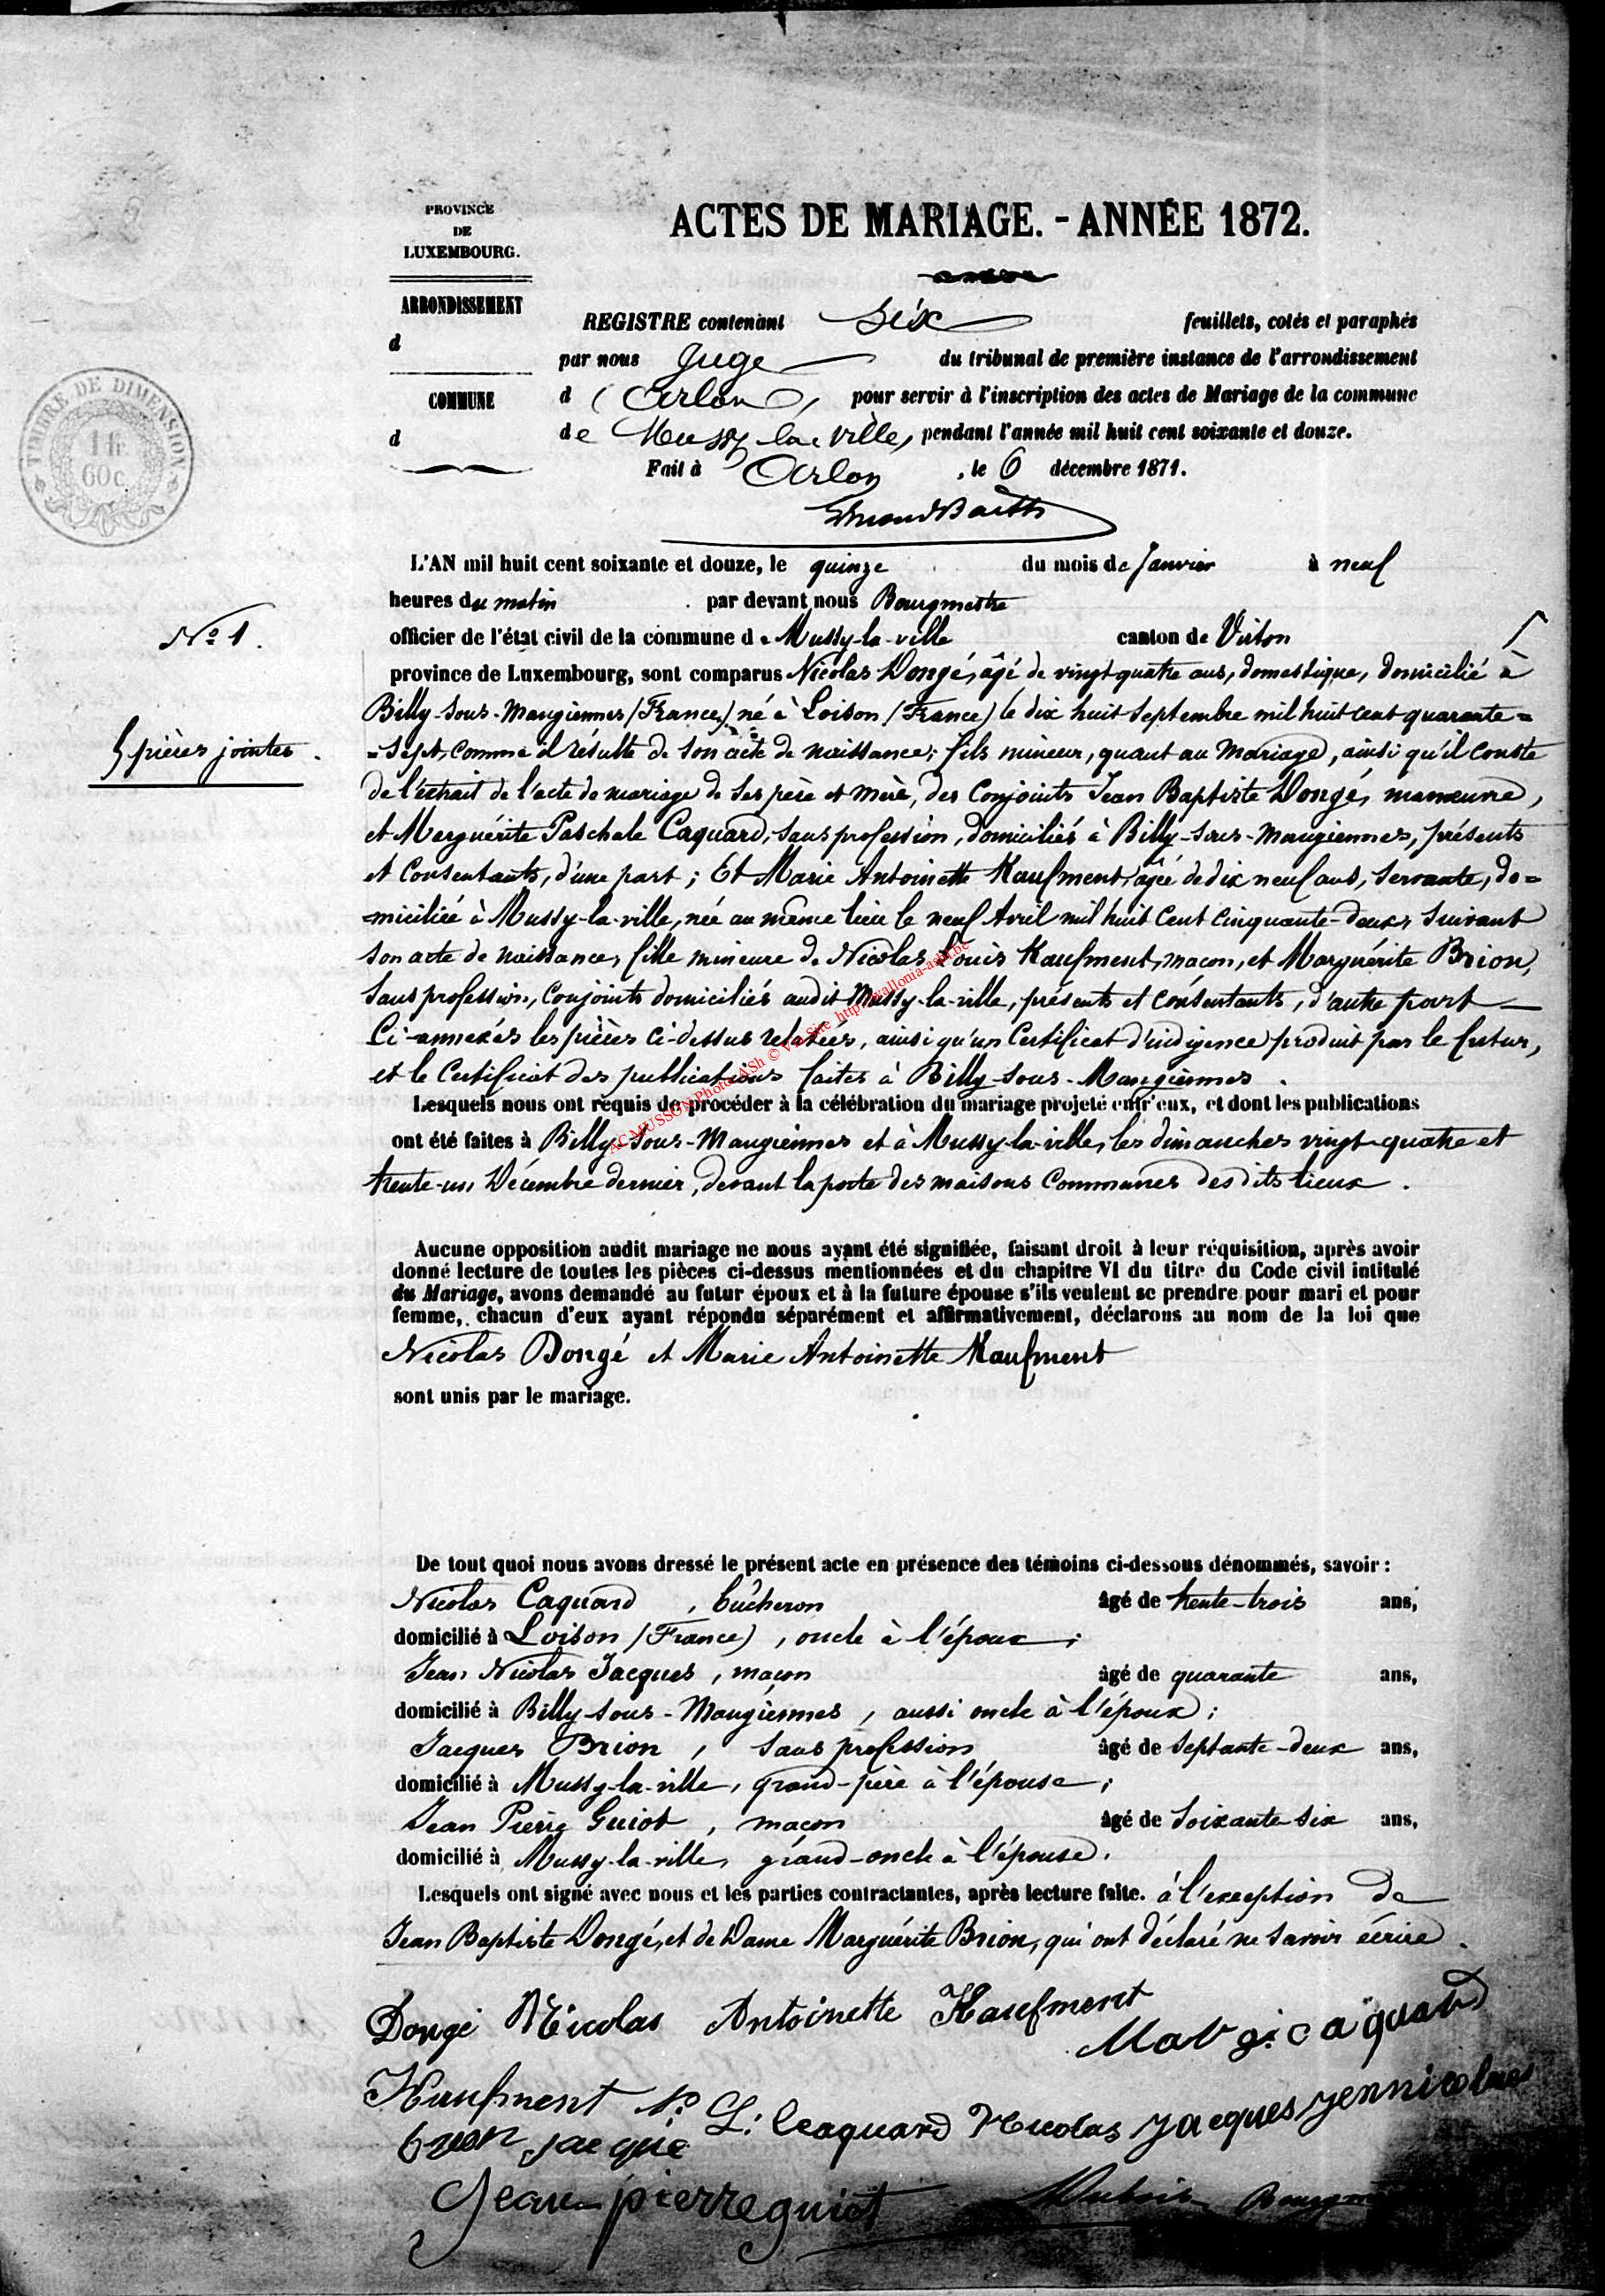 PROVINCE
DE
LUXEMBOURG.
ACTES DE MARIAGE. - ANNÉE 1872.
ARRONDISSEMENT
d
COMMUNE
d
TIMBRE DE DIMENSION
1 fr.
60 c.
REGISTRE contenant Six feuillets, cotés et paraphés
par nous Juge du tribunal de première instance de l'arrondissement
d'Arlon, pour servir à l'inscription des actes de Mariage de la commune
de Mussy-la-ville, pendant l'année mil huit cent soixante et douze.
Fait à Arlon, le 6 décembre 1871.
L'AN mil huit cent soixante et douze, le quinze du mois de Janvier à neuf
heures du matin par devant nous Bourgmestre
No 1.
officier de l'état civil de la commune de Mussy-la-ville canton de Virton
province de Luxembourg, sont comparus Nicolas Dongé, âgé de vingt quatre ans, domestique, domicilié à
Billy-sous-Mangiennes (France) né à Loison (France) le dix huit septembre mil huit cent quarante=
5 pièces jointes.
=sept, comme il résulte de son acte de naissance; fils mineur, quant au mariage, ainsi qu'il conste
de l'extrait de l'acte de mariage de ses père et mère, des Conjoints Jean Baptiste Dongé, manœuvre,
et Marguérite Paschale Caquard, sans profession, domiciliés à Billy-sous-Mangiennes, présents
et consentants, d'une part; Et Marie Antoinette Kaufment, âgée de dix neuf ans, servante, do=
=miciliée à Mussy-la-ville, née au même lieu le neuf Avril mil huit cent cinquante-deux, suivant
son acte de naissance, fille mineure de Nicolas Louis Kaufment, maçon, et Marguérite Brion,
sans profession, conjoints domiciliés audit Mussy-la-ville, présents et consentants, d'autre part
Ci-annexés les pièces ci-dessus relatées, ainsi qu'un Certificat d'indigence produit par le futur,
et le Certificat des publications faites à Billy-sous-Mangiennes.
Lesquels nous ont requis de procéder à la célébration du mariage projeté entr'eux, et dont les publications
ont été faites à Billy-sous-Mangiennes et à Mussy-la-ville, les dimanches vingt-quatre et
trente-un Décembre dernier, devant la porte des maisons Communes des dits lieux.
Aucune opposition audit mariage ne nous ayant été signifiée, faisant droit à leur réquisition, après avoir
donné lecture de toutes les pièces ci-dessus mentionnées et du chapitre VI du titre du Code civil intitulé
du Mariage, avons demandé au futur époux et à la future épouse s'ils veulent se prendre pour mari et pour
femme, chacun d'eux ayant répondu séparément et affirmativement, déclarons au nom de la loi que
Nicolas Dongé et Marie Antoinette Kaufment
sont unis par le mariage.
De tout quoi nous avons dressé le présent acte en présence des témoins ci-dessous dénommés, savoir :
Nicolas Caquard, bûcheron âgé de trente-trois ans,
domicilié à Loison (France), oncle à l'époux;
Jean Nicolas Jacques, maçon âgé de quarante ans,
domicilié à Billy-sous-Mangiennes, aussi oncle à l'époux;
Jacques Brion, sans profession âgé de septante-deux ans,
domicilié à Mussy-la-ville, grand-père à l'épouse;
Jean Pierre Guiot, maçon âgé de soixante-six ans,
domicilié à Mussy-la-ville, grand-oncle à l'épouse.
Lesquels ont signé avec nous et les parties contractantes, après lecture faite. à l'exception de
Jean Baptiste Dongé, et de Dame Marguérite Brion, qui ont déclaré ne savoir écrire.
Dongé Nicolas Antoinette Kaufment
Marg. Caquard
Kaufment N. L. Caquard Nicolas Jacques Jennicolas
brion jacque
Jean pierre guiot